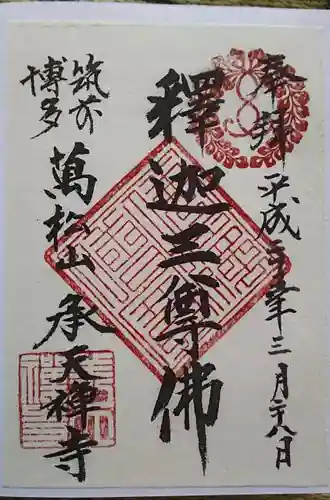 奉拝 平成 年三月廿八日
釋迦三尊佛
筑前
博多
萬松山 承天禅寺